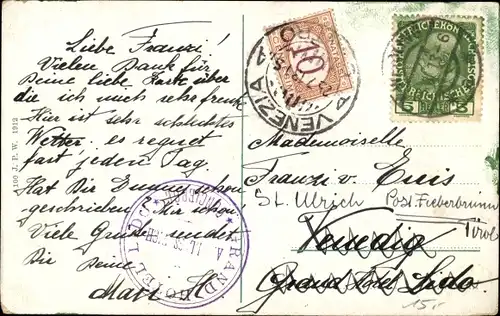 Liebe Franzi!
Vielen Dank für
Deine liebe Karte über
die ich mich sehr freute
Hier ist sehr schlechtes
Wetter. es regnet
fast jeden Tag
Hat Dir schon
geschrieben? Mir schon.
Viele Grüße sendet
Dir Deine
4100 J. P. W. 1912
10
VENEZIA
5 HELLER 5
GRAND HOTEL LIDO
Mademoiselle
Franzi v.
St. Ulrich Post Fieberbrunn
Tirol
Venedig
Grand Hotel Lido
15,-